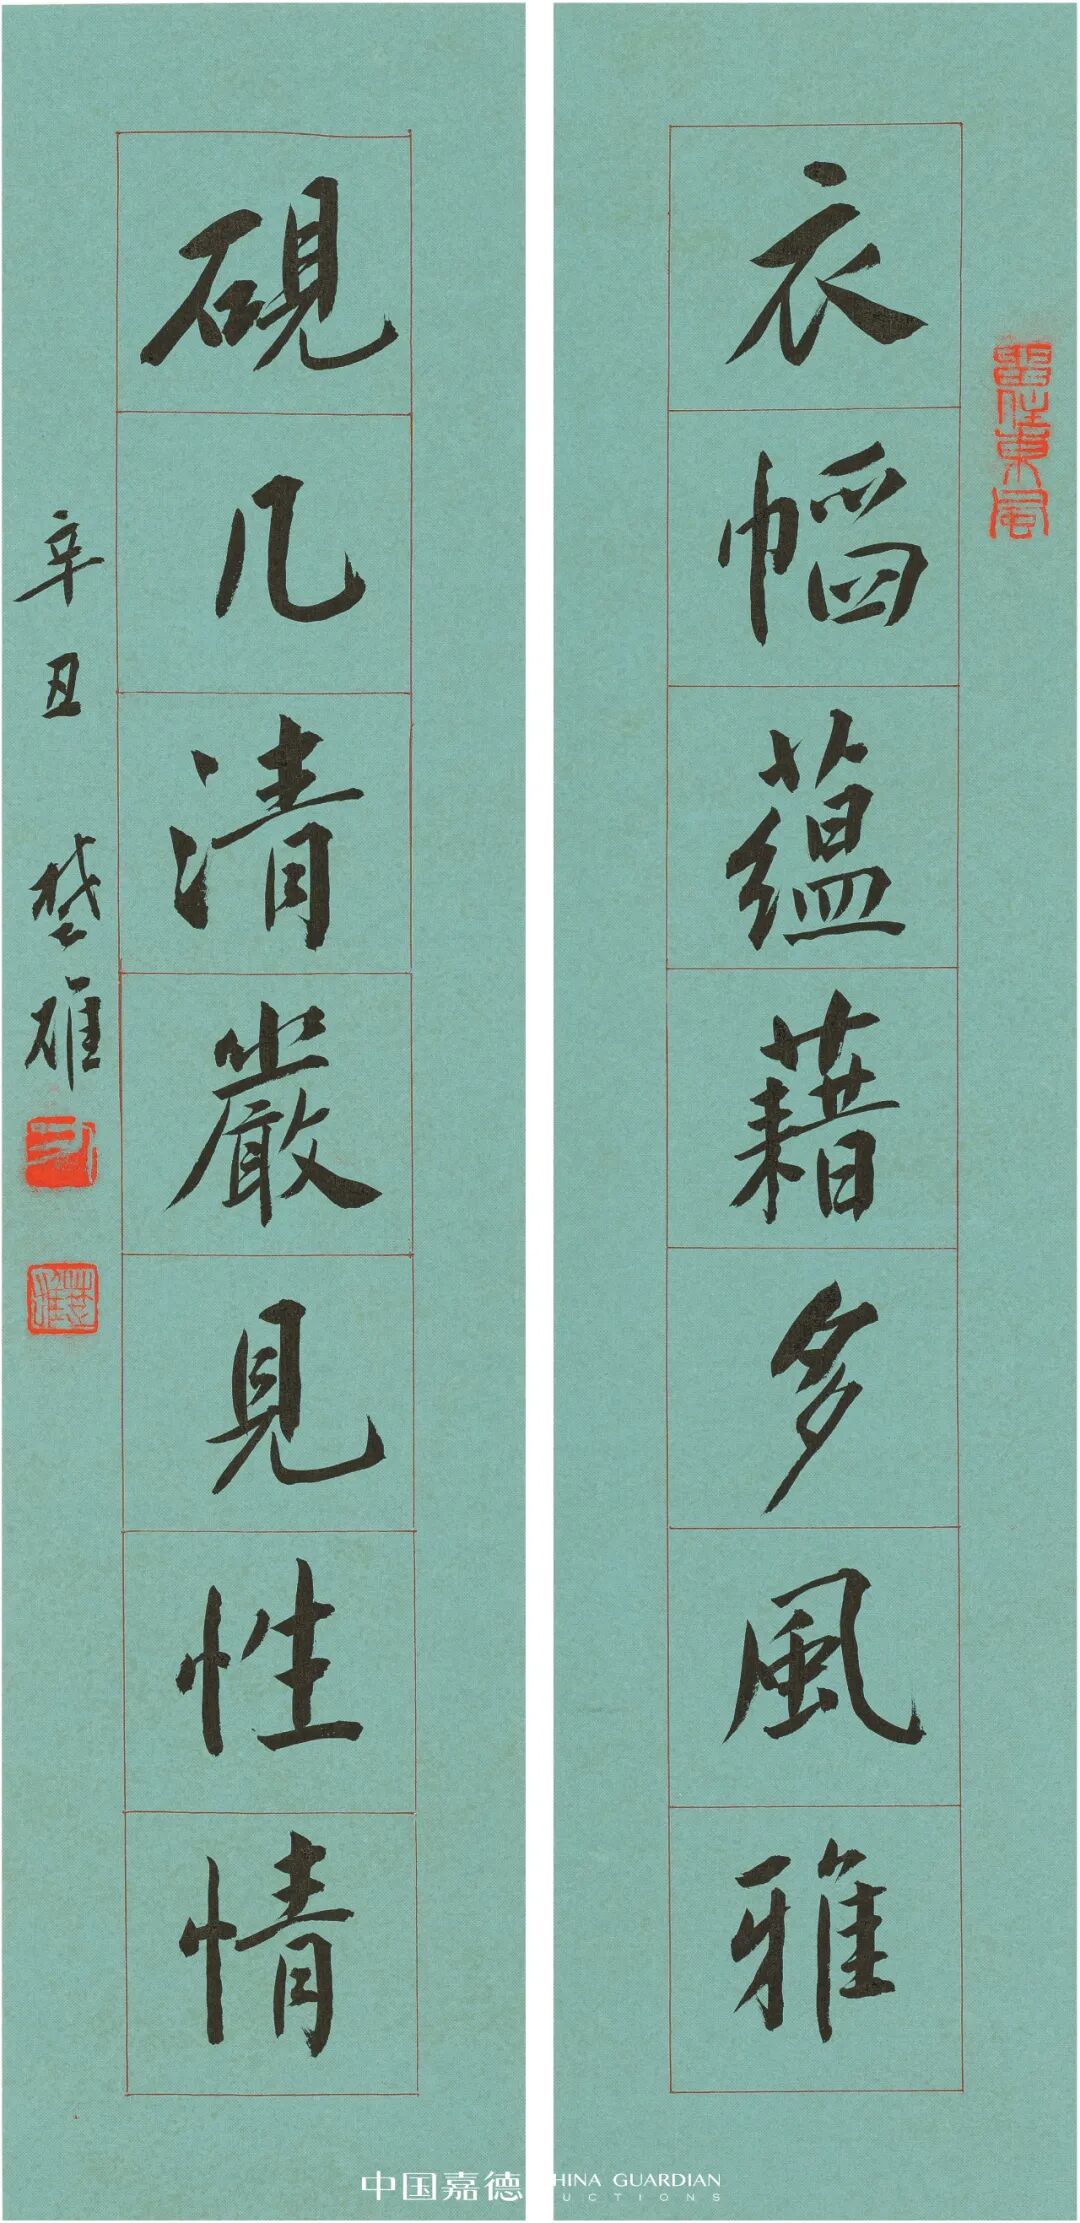 留住東風
衣幅蘊藉多風雅
硯几清嚴見性情
辛丑 楚雄
楚雄
中国嘉德
HINA GUARDIAN
UCTIONS